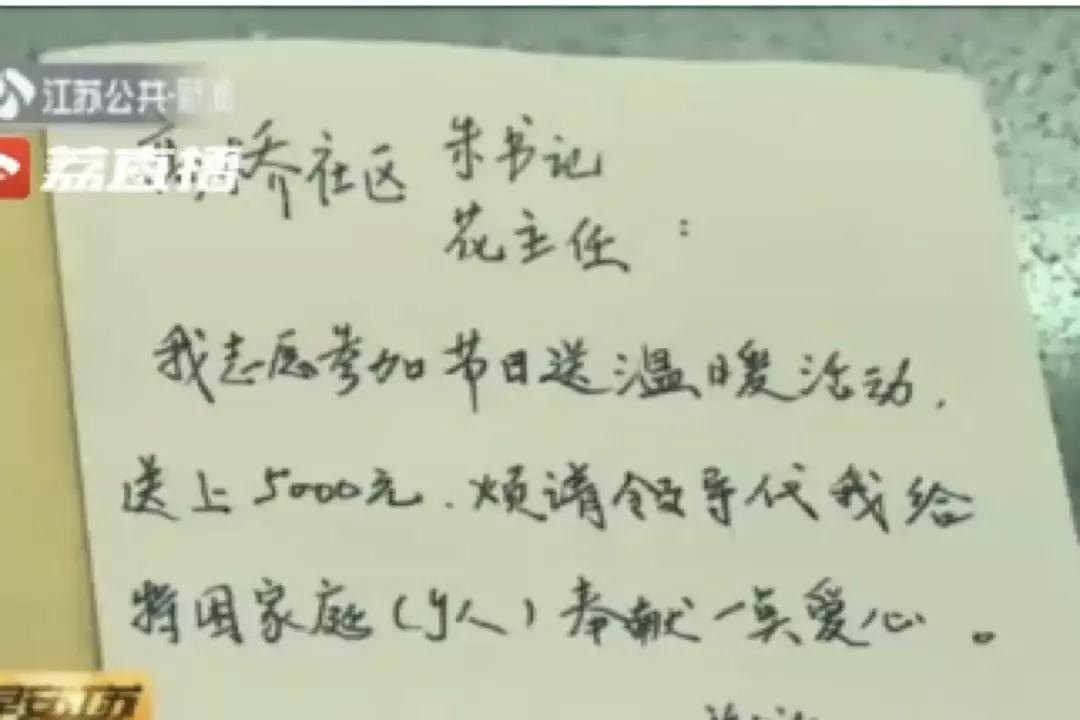 江苏公共·新闻
荔直播
桥社区 朱书记
花主任：
我志愿参加节日送温暖活动，
送上5000元，烦请领导代我给
特困家庭（人）奉献一点爱心。
早安江苏